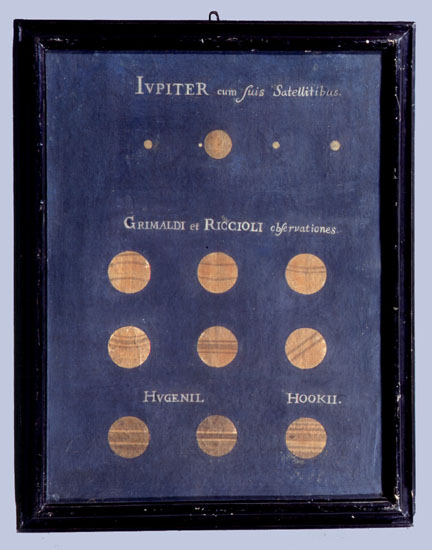 IVPITER cum ſuis Satellitibus.
GRIMALDI et RICCIOLI obſervationes.
HVGENII. HOOKII.